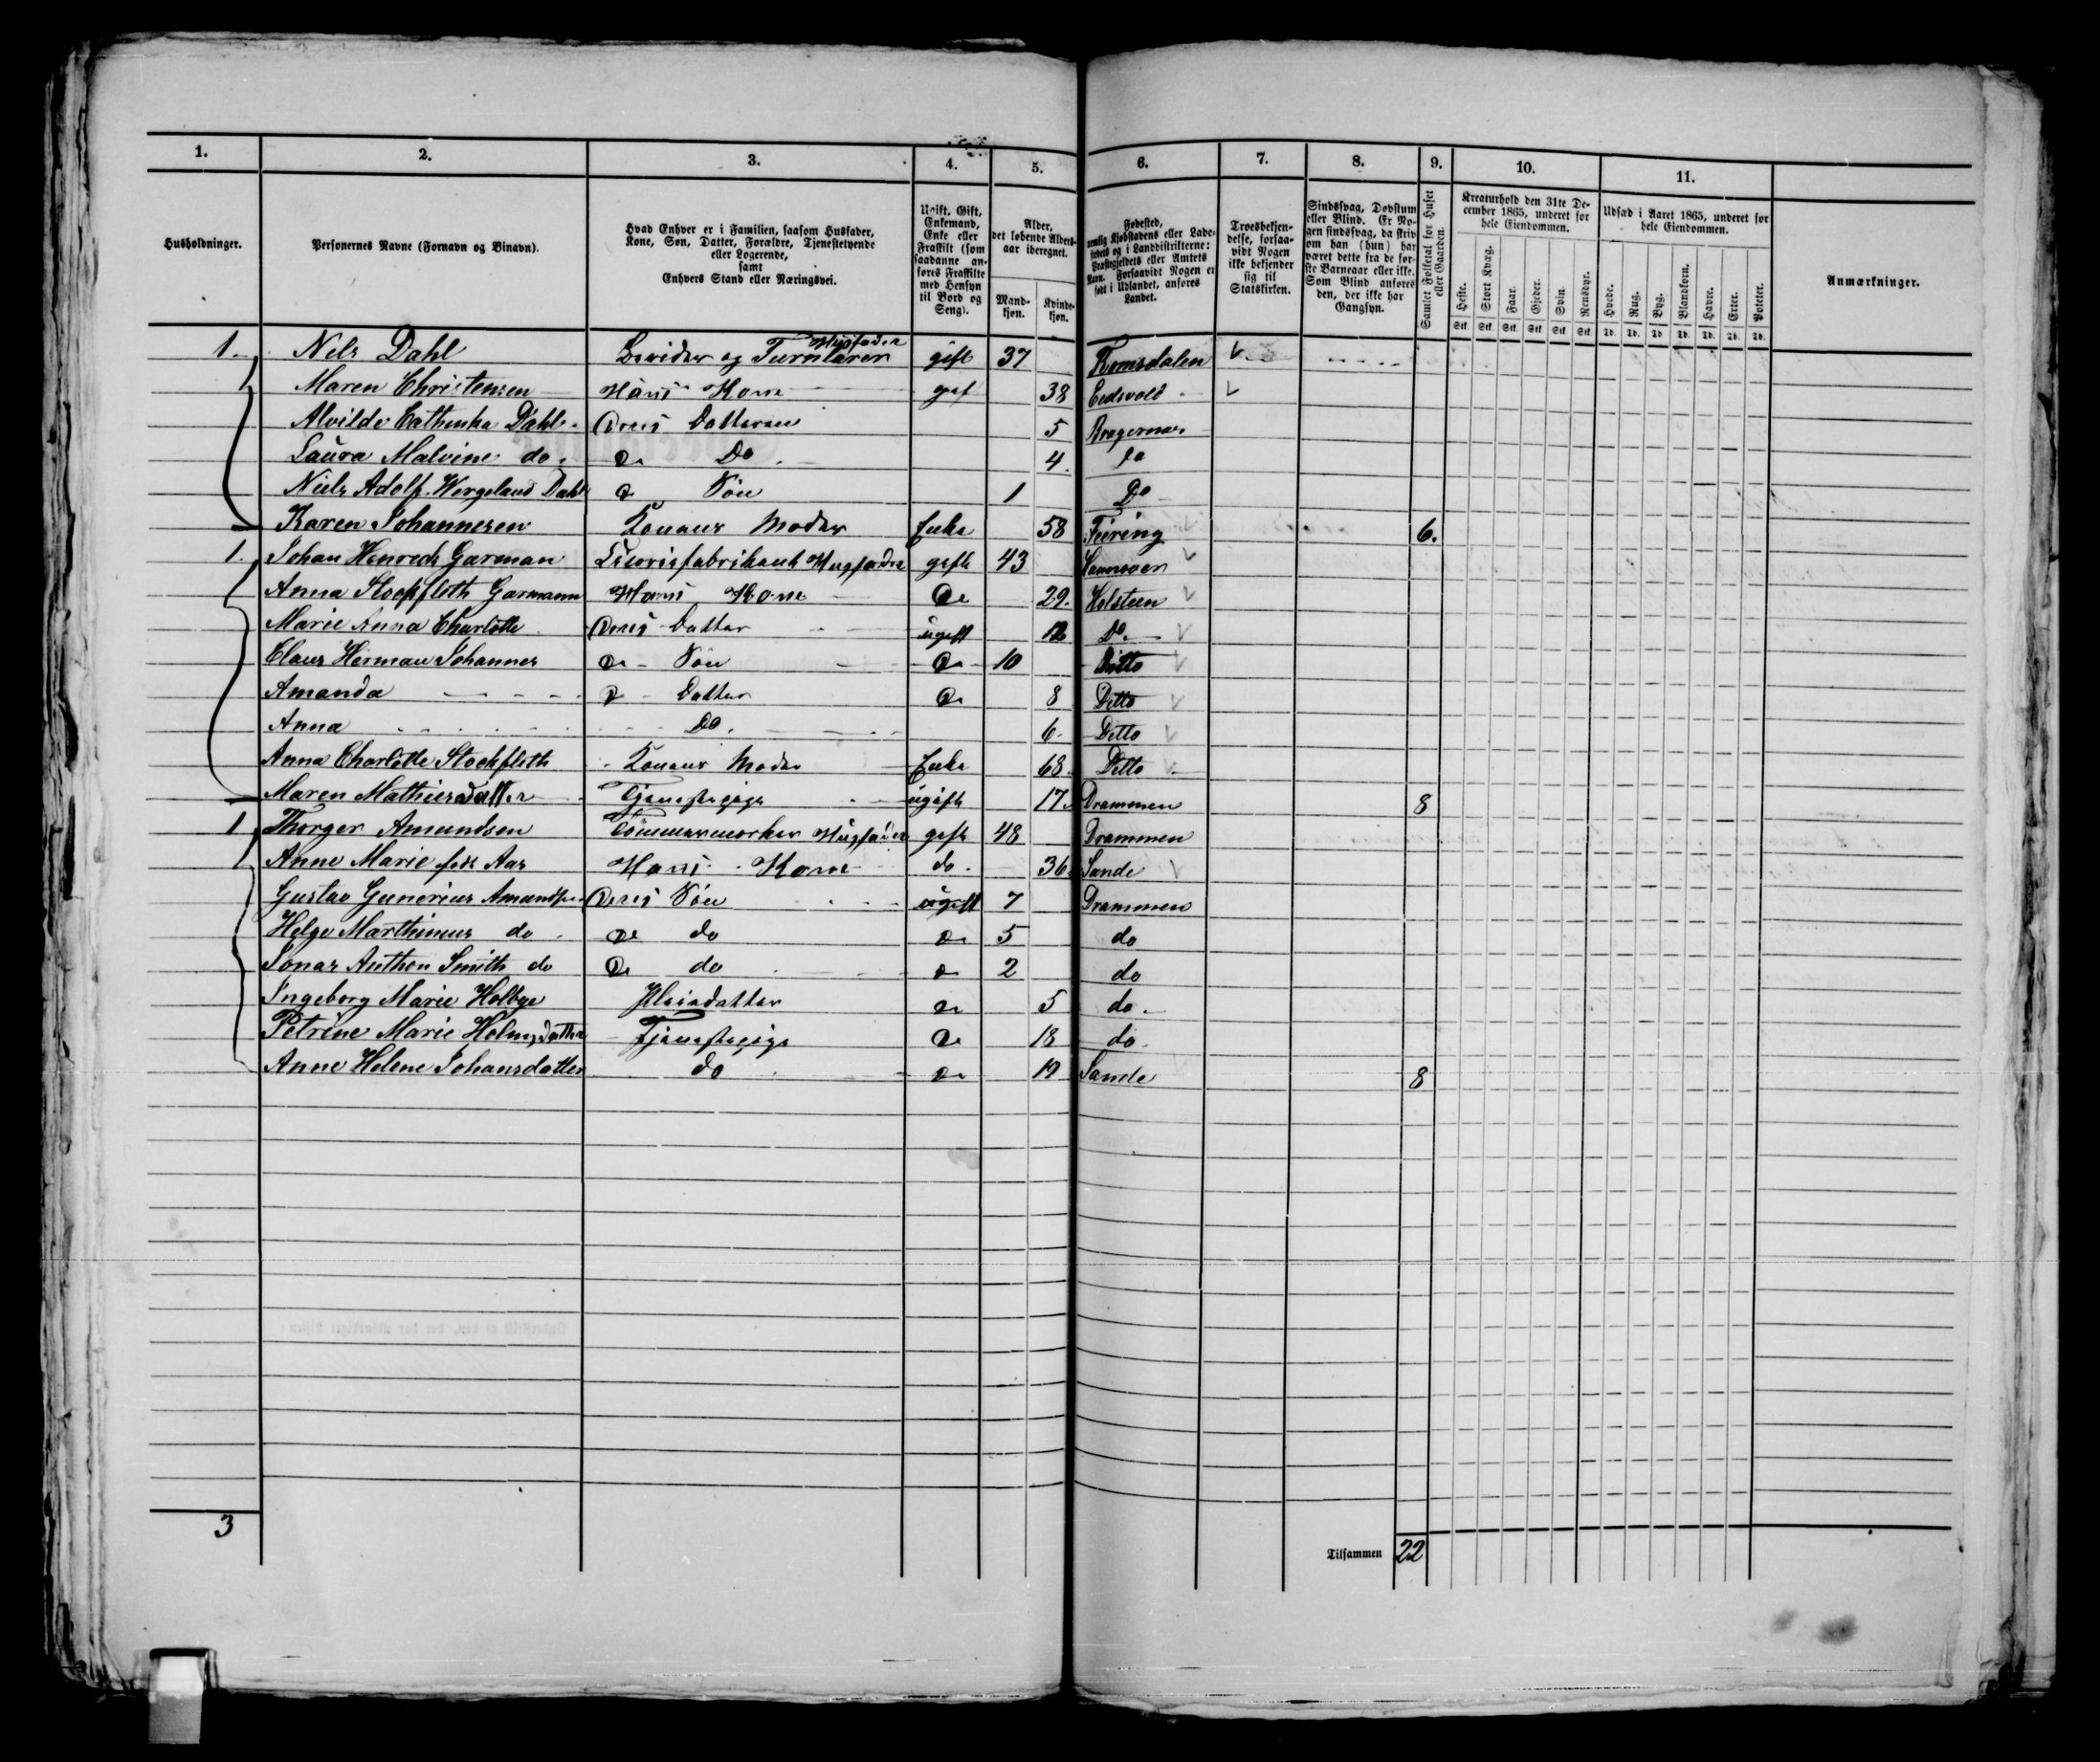 1. 2. 3. 4. 5. 6. 7. 8. 9. 10. 11.
Husholdninger.
Personernes Navne (Fornavn og Binavn).
Hvad Enhver er i Familien, saasom Husfader,
Kone, Søn, Datter, Forældre, Tjenestetyende
eller Logerende,
samt
Enhvers Stand eller Næringsvei.
Ugift, Gift,
Enkemand,
Enke eller
Fraskilt (som
saadanne an-
føres Fraskilte
med Hensyn
til Bord og
Seng).
Alder,
det løbende Alders-
aar iberegnet.
Mand-
kjøn.
Kvinde-
kjøn.
Fødested,
nemlig Kjøbstadens eller Lade-
stedets og i Landdistrikterne:
Præstegjeldets eller Amtets
Navn. Forsaavidt Nogen er
født i Udlandet, anføres
Landet.
Troesbekjen-
delse, forsaa-
vidt Nogen
ikke bekjender
sig til
Statskirken.
Sindssvag, Døvstum
eller Blind. Er No-
gen sindssvag, da skriv
om han (hun) har
været dette fra de før-
ste Barneaar eller ikke.
Som Blind anføres
den, der ikke har
Gangsyn.
Samlet Folketal for Huset
eller Gaarden.
Kreaturhold den 31te De-
cember 1865, underet for
hele Eiendommen.
Heste. Stort Kvæg. Faar. Gjeder. Svin. Rensdyr.
Stk. Stk. Stk. Stk. Stk. Stk.
Udsæd i Aaret 1865, underet for
hele Eiendommen.
Hvede. Rug. Byg. Blandkorn. Havre. Erter. Poteter.
Td. Td. Td. Td. Td. Td. Td.
Anmærkninger.
1. Nels Dahl og Turnlærer Husfader gift 37 Romsdalen
Maren Christensen Hans Kone gif 38 Eidsvold
Alvilde Cathinka Dahl Deres Datteren 5 Bragernæs
Laura Malvine do. Do 4. Do
Niels Adolf Wergeland Dahl Søn 1 Do
Karen Johannesen Konens Moder Enke 58 Feiring 6.
1. Johan Henrich Garman Husfader gift 43 Hannover
Anna Stockfleth Garmann Hans Kone Do 29. Holsteen
Marie Anna Charlotte Deres Datter ugift 12 Do.
Claus Herman Johannes Do Søn Do 10 Ditto
Amanda Do Datter Do 8 Ditto
Anna Do. 6. Ditto
Anna Charlotte Stockfleth Konens Moder Enke 68. Ditto
Maren Mathiesdatter Tjenestepige ugift 17. Drammen 8
1 Thorger Amundsen Tømmermerker Husfader gift 48 Drammen
Anne Marie født Aas Hans Kone do. 36. Sande
Gustav Gunerius Amundsen Deres Søn ugift 7 Drammen
Helge Marthinius do Do do Do 5 do
Jonas Anthon Smith do Do do Do 2 do
Ingeborg Marie Holbye Pleiedatter Do 5 do
Petrine Marie Holmsdatter Tjenestepige Do 18 do.
Anne Helene Johansdatter do Do 19 Sande 8
3
Tilsammen 22